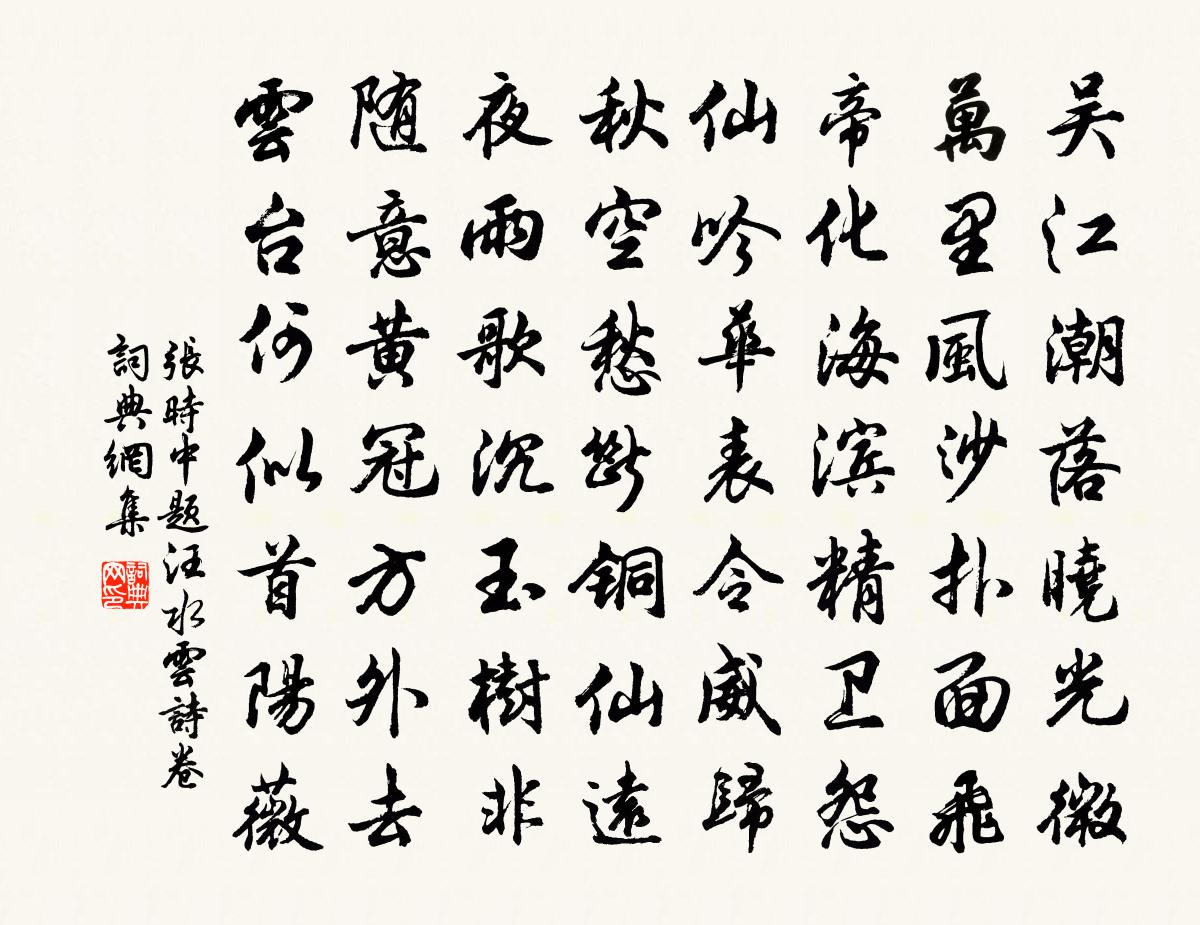 吴江潮落曉光微
萬里風沙扑面飛
帝化海滨精卫怨
仙吟華表令威歸
秋空愁断铜仙遠
夜雨歌沉玉樹非
随意黄冠方外去
雲台何似首陽薇
張時中题汪水雲詩卷
詞典網集
詞典网印